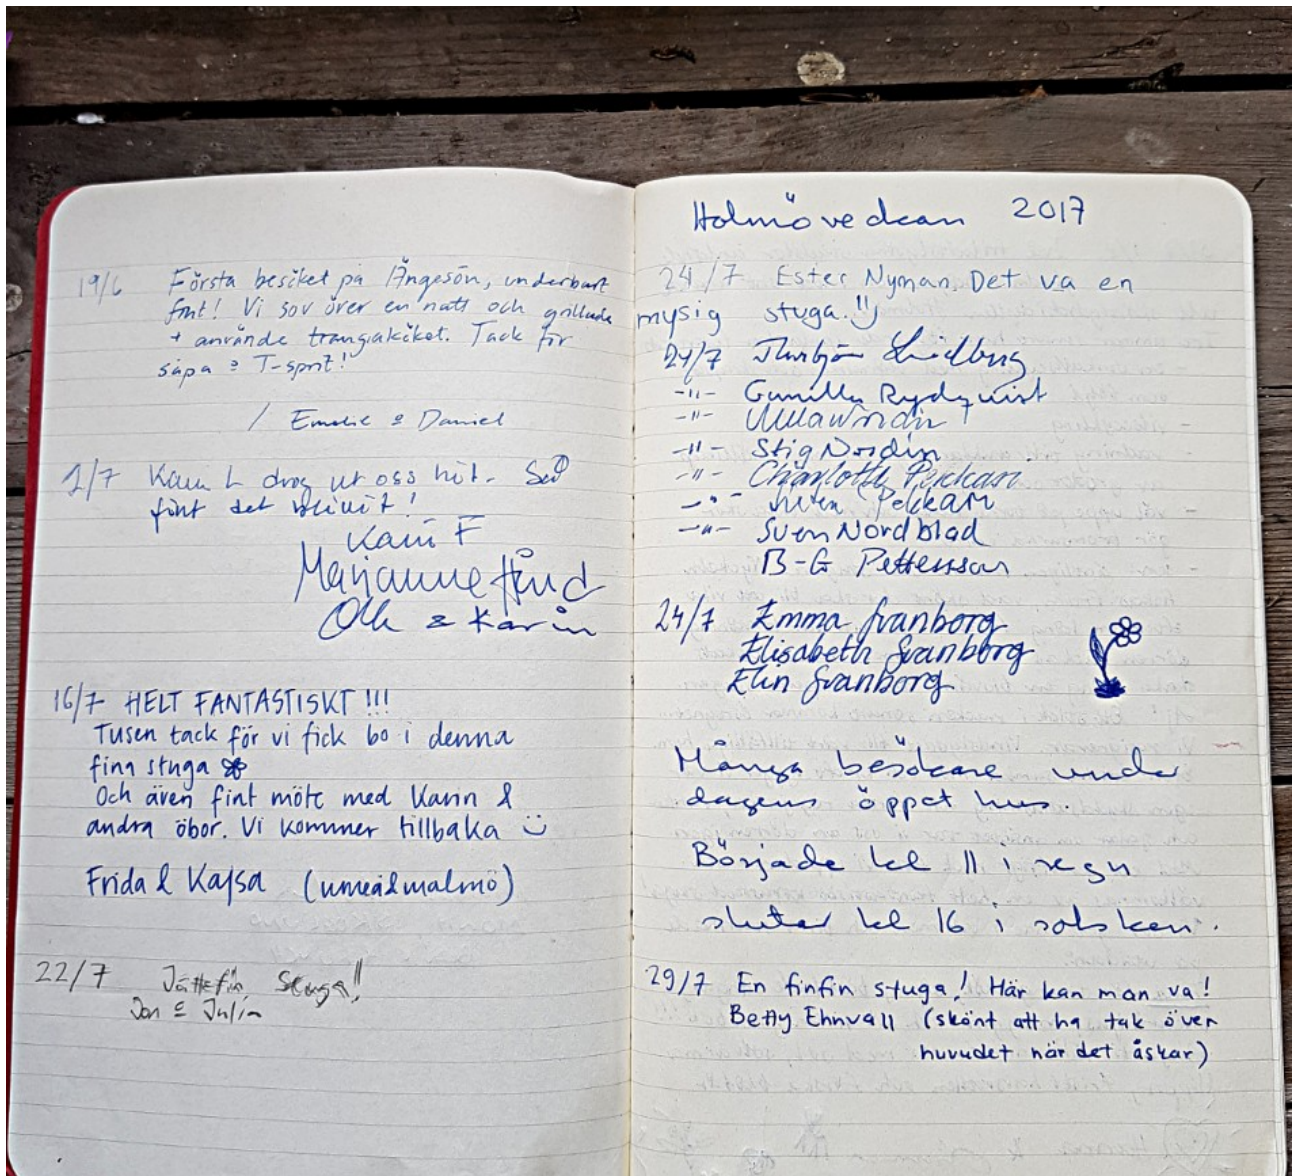 19/6 Första besöket på Ängesön, underbart
fint! Vi sov över en natt och grillade
+ använde trangiaköket. Tack för
såpa & T-sprit!
/ Emelie & Daniel
1/7 Karin L drog ut oss hit. Så
fint det blivit!
Karin F
Marianne
Olle & Karin
16/7 HELT FANTASTISKT !!!
Tusen tack för vi fick bo i denna
fina stuga
Och även fint möte med Karin &
andra öbor. Vi kommer tillbaka
Frida & Kajsa (umeå&malmö)
22/7 Jättefin stuga!
Jon & Julia
Holmöveckan 2017
24/7 Ester Nyman. Det va en
mysig stuga.!!
24/7 Thorbjörn Lindberg
-"- Gunilla Rydquist
-"- Ulla Nordin
-"- Stig Nordin
-"- Charlotte Pekkari
-"- Pekkari
-"- Sven Nordblad
B-G Pettersson
24/7 Emma Svanborg
Elisabeth Svanborg
Elin Svanborg
Många besökare under
dagens öppet hus.
Började kl 11 i regn
slutar kl 16 i solsken.
29/7 En finfin stuga! Här kan man va!
Betty Ehnvall (skönt att ha tak över
huvudet när det åskar)